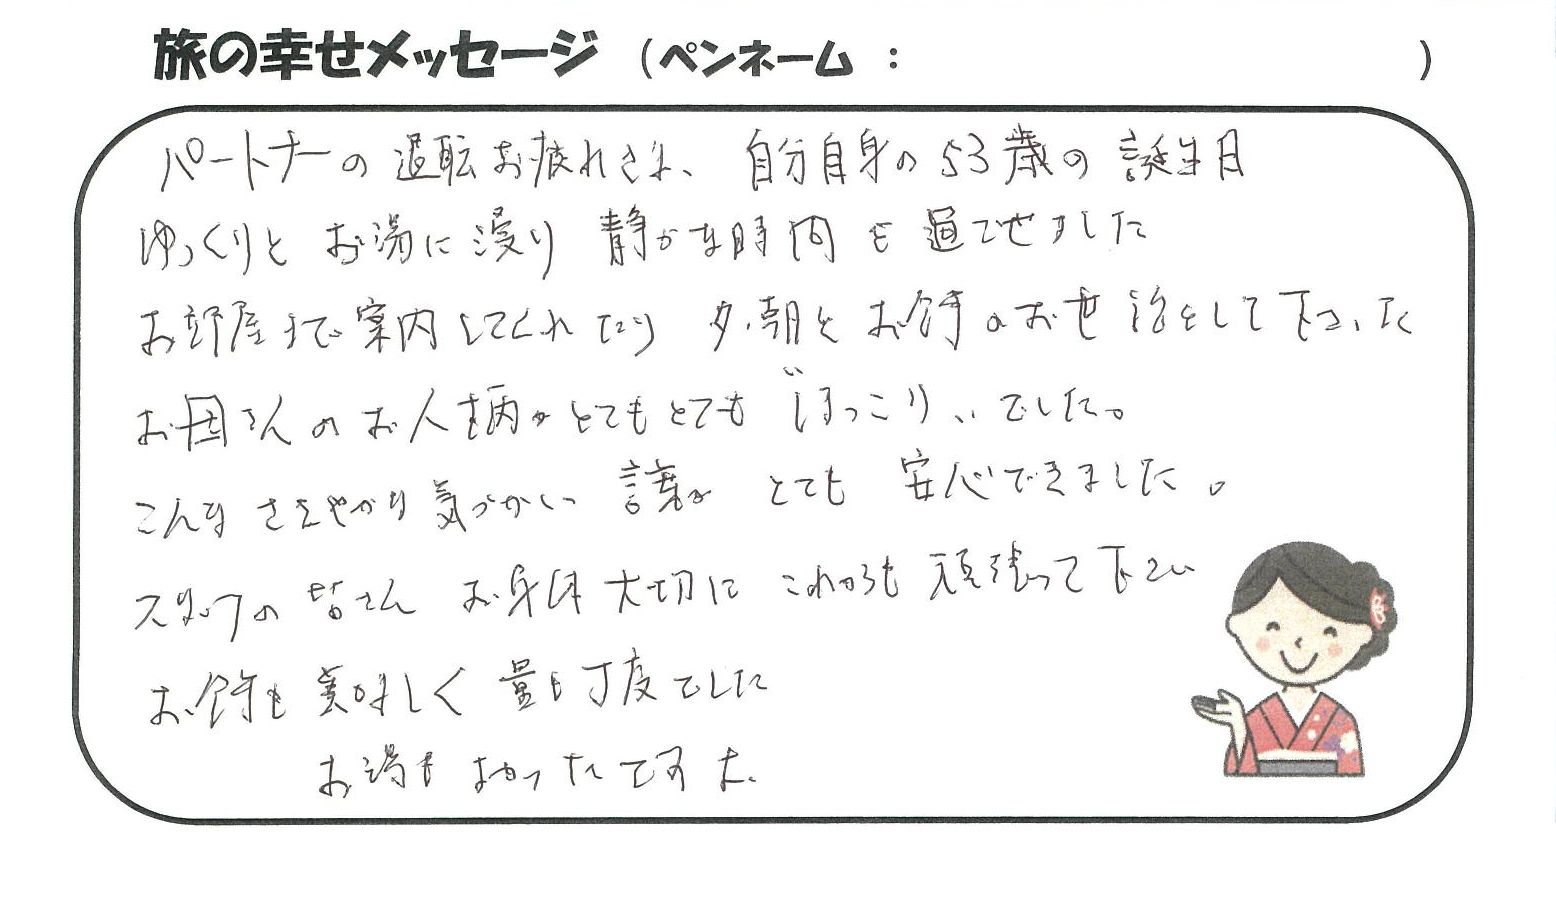 旅の幸せメッセージ （ペンネーム ： ）
パートナーの退転お疲れさま、自分自身の53歳の誕生日
ゆっくりと お湯に浸り 静かな時間を過ごせました
お部屋まで案内してくれたり 夕・朝とお食事のお世話をして下さった
お母さんのお人柄がとてもとても "ほっこり" でした。
こんな ささやかな 気づかい とても 安心できました。
スタッフの皆さん お身体大切に これからも 頑張って下さい
お食事も 美味しく 量も丁度でした
お湯も よかったですよ